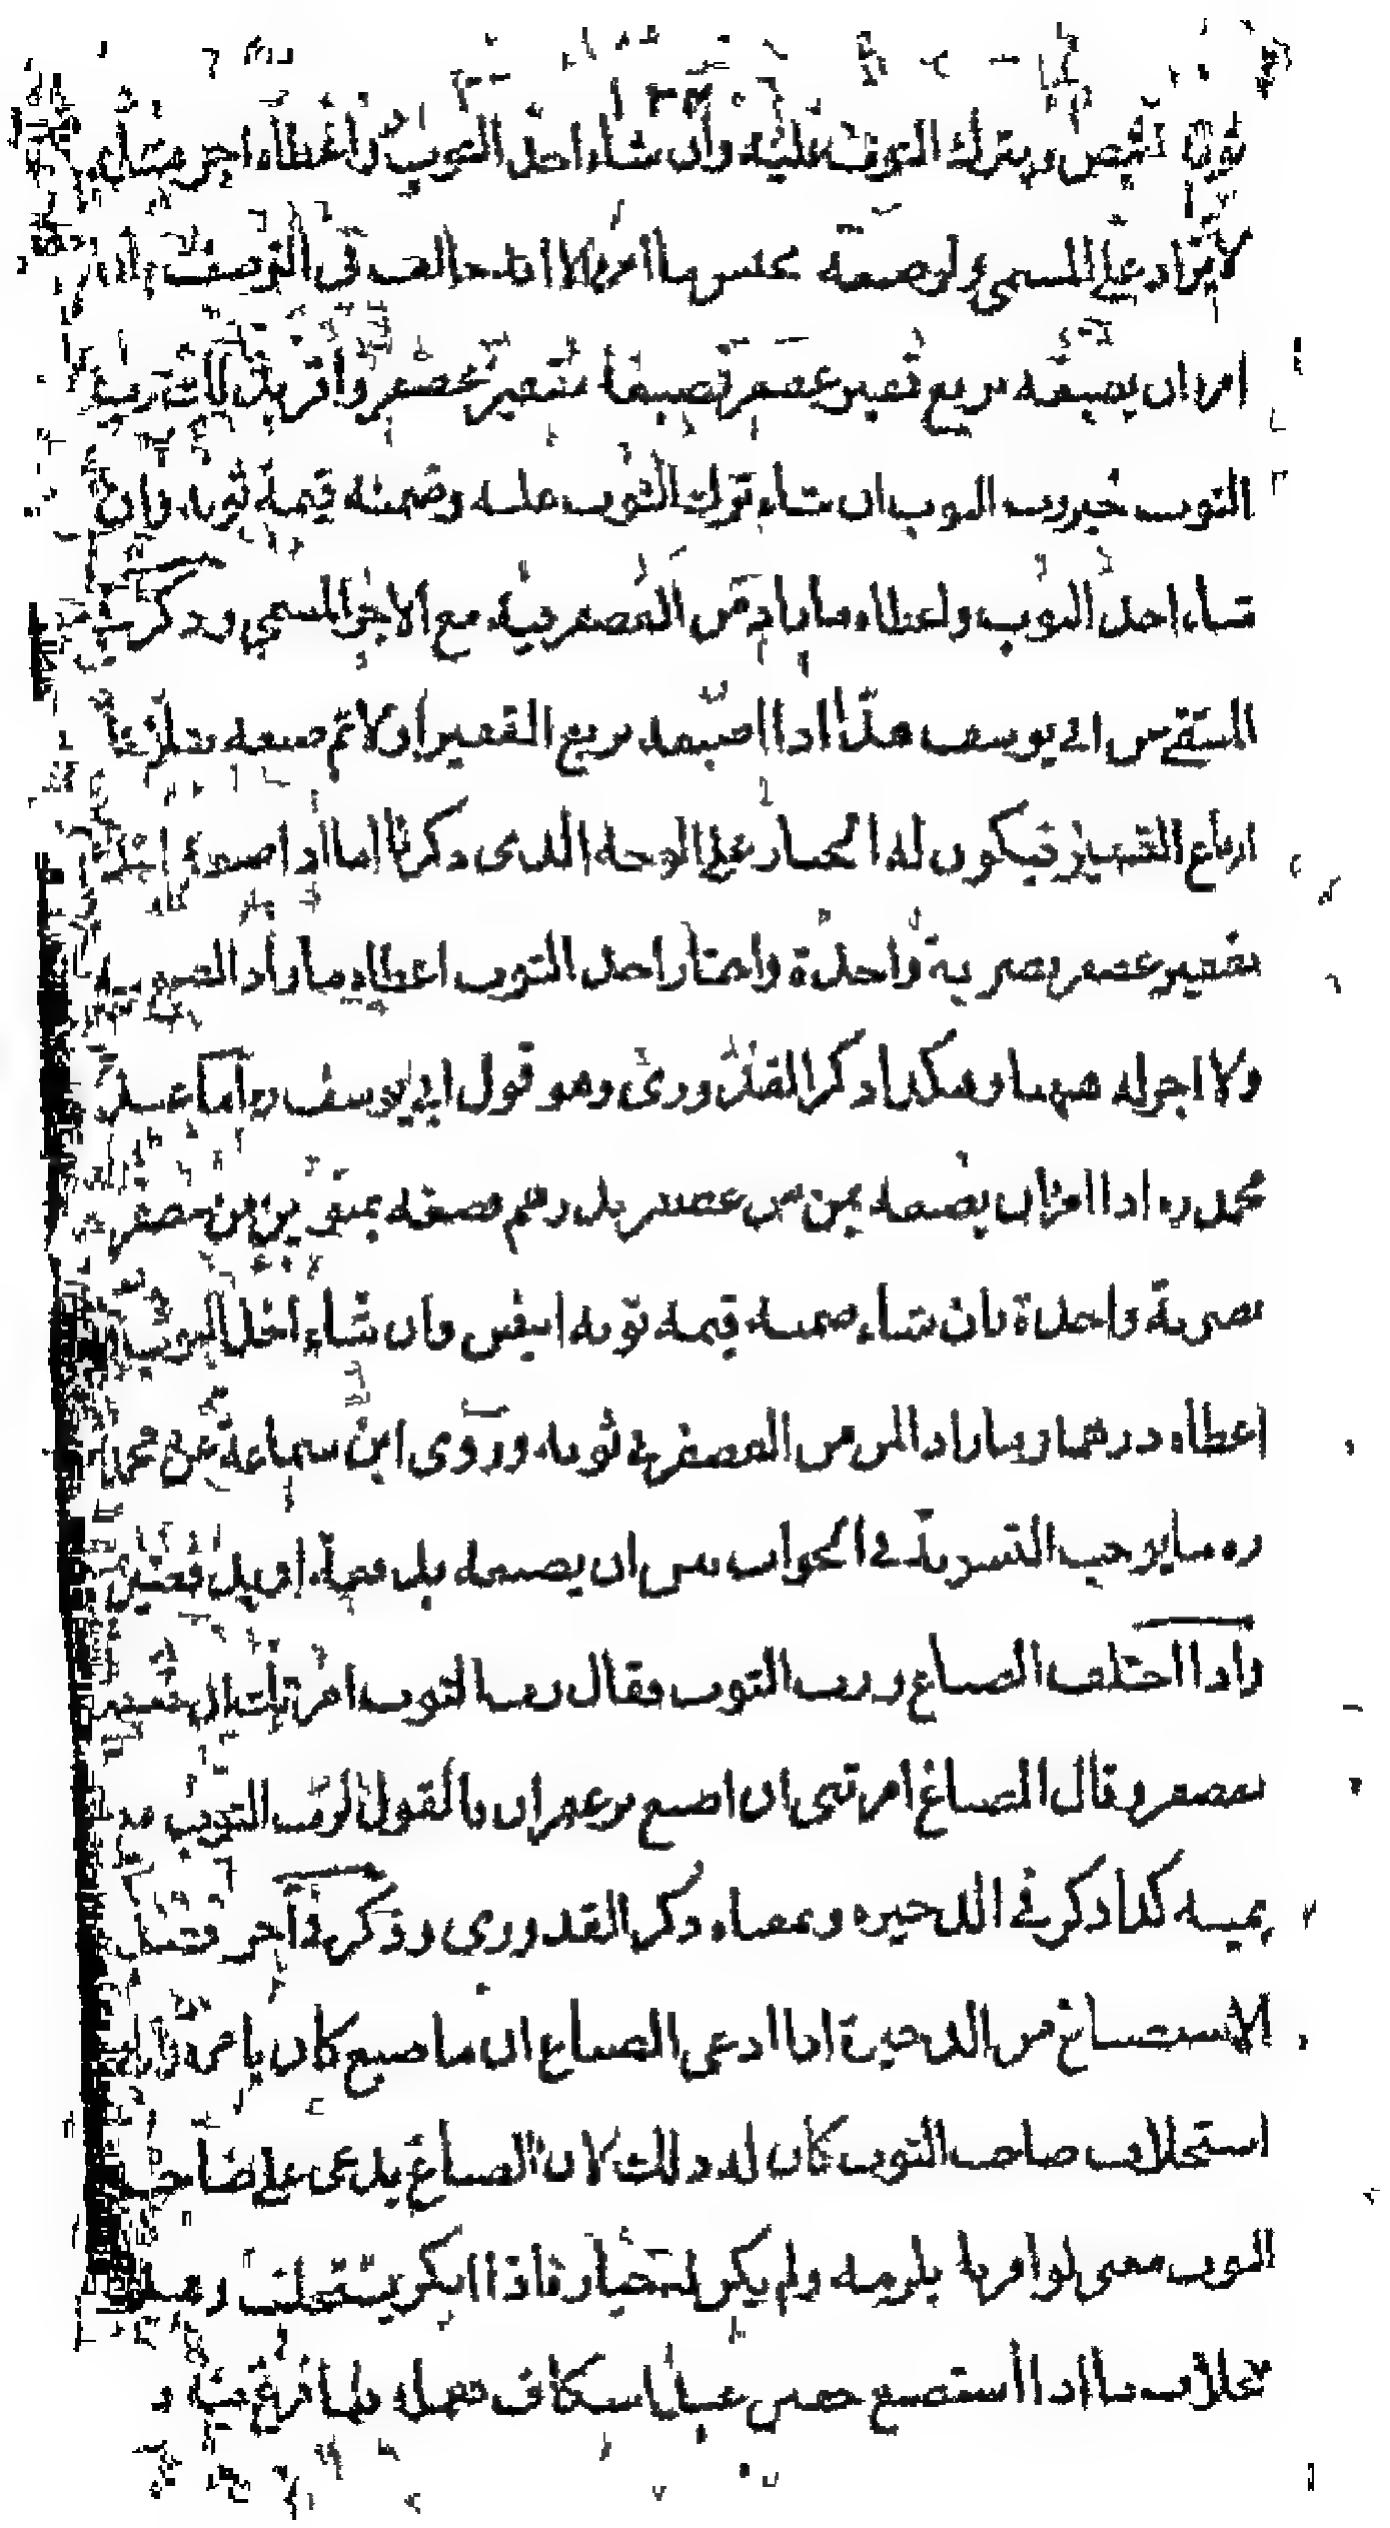 ثوب ويترك الثوب عليه وان شاء اخذ الثوب واعطاه اجر مثله
لا يزاد على المسمى ولو صبغه بجنس ما امر الا انه خالف في الوصف
امر ان يصبغه بربع قفيز عصفر فصبغه بقفيز عصفر واقر بذلك رب
الثوب خير رب الثوب ان شاء ترك الثوب عليه وضمنه قيمة ثوبه وان
شاء اخذ الثوب واعطاه ما زاد من العصفر فيه مع الاجر المسمى وذكر في
المنتقى عن ابي يوسف هذا اذا صبغه بربع القفيز اولا ثم صبغه بثلاثة
ارباع القفيز فيكون له الخيار على الوجه الذي ذكرنا اما اذا صبغه
بقفيز عصفر بضربة واحدة واختار اخذ الثوب اعطاه ما زاد الصبغ فيه
ولا اجر له ههنا وهكذا ذكر القدوري وهو قول ابي يوسف ره اما عند
محمد ره اذا امر ان يصبغه بمن من عصفر بدرهم فصبغه بمنوين من عصفر
بضربة واحدة فان شاء ضمنه قيمة ثوبه ابيض وان شاء اخذ الثوب
اعطاه درهما وما زاد المن من العصفر في ثوبه وروى ابن سماعة عن محمد
ره ما يوجب التسوية في الجواب بين ان يصبغه بدفعة او بدفعتين
واذا اختلف الصباغ ورب الثوب فقال رب الثوب امرتك ان تصبغه
بعصفر وقال الصباغ امرتني ان اصبغ بزعفران فالقول لرب الثوب مع
يمينه كذا ذكر في الذخيرة وبمعناه ذكر القدوري وذكر في آخر فصل
الاستصناع من الذخيرة اذا ادعى الصباغ ان ما صبغ كان بامره واراد
استحلاف صاحب الثوب كان له ذلك لان الصباغ يدعى على صاحب
الثوب معنى لو اقر به يلزمه ولم يكن له خيار فاذا انكر يستحلف وهذا
بخلاف ما اذا استصنع خفين عند اسكاف فعمله فلما فرغ منه